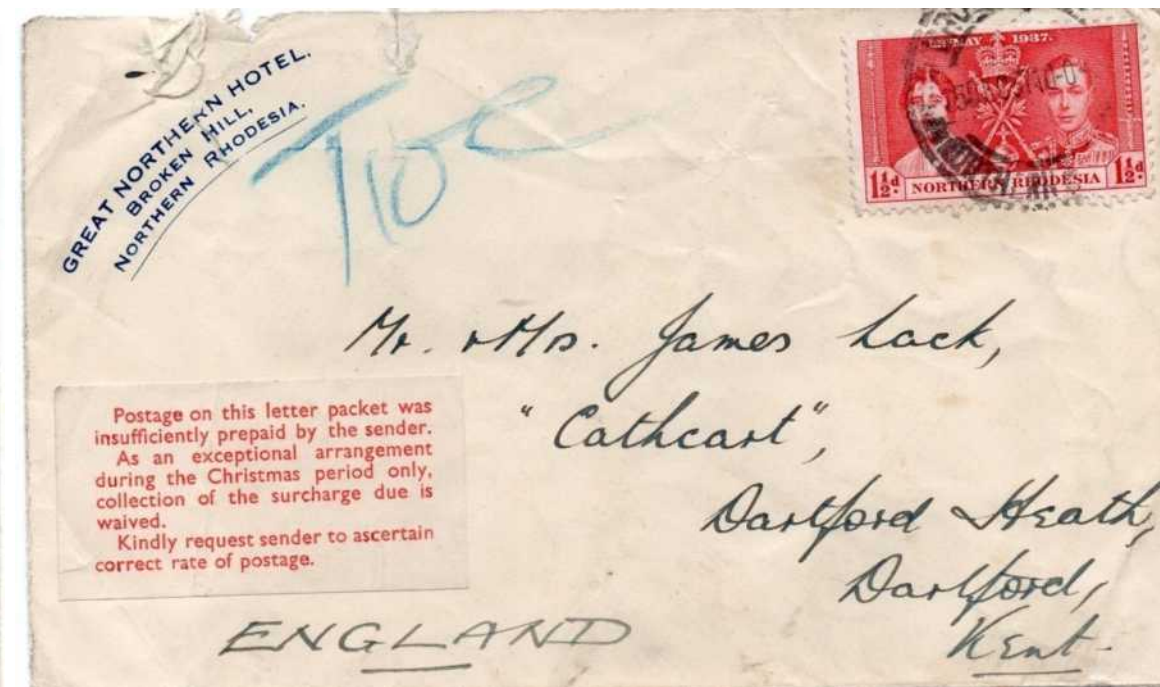 GREAT NORTHERN HOTEL.
BROKEN HILL,
NORTHERN RHODESIA.
T10c
12TH MAY 1937.
1½d. NORTHERN RHODESIA 1½d.
Mr. & Mrs. James Lack,
"Cathcart",
Dartford Heath,
Dartford,
Kent.
Postage on this letter packet was
insufficiently prepaid by the sender.
As an exceptional arrangement
during the Christmas period only,
collection of the surcharge due is
waived.
Kindly request sender to ascertain
correct rate of postage.
ENGLAND